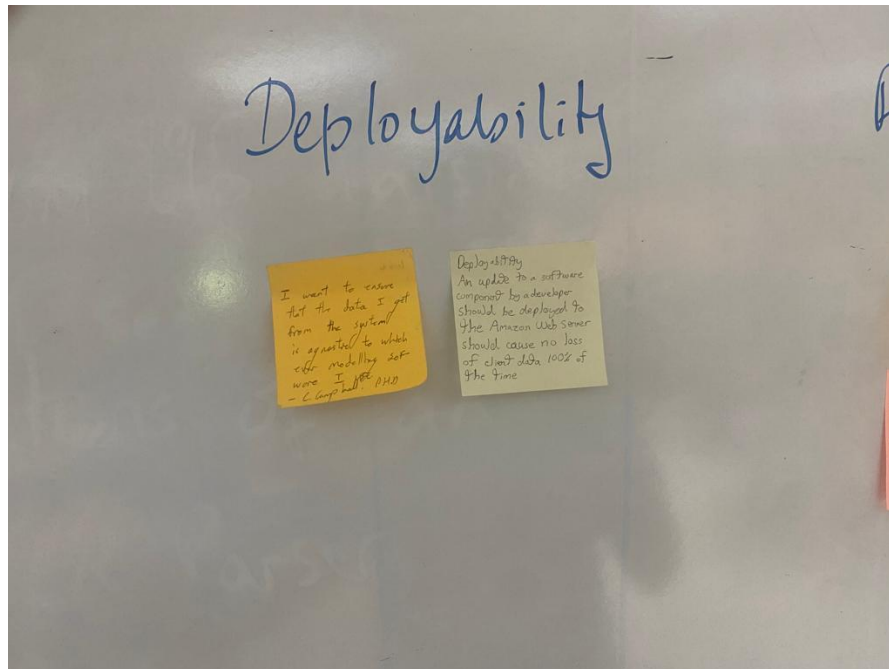 Deployability
I want to ensure
that the data I get
from the system
is agnostic to which
ever modelling soft
ware I use
- L. Campbell, PHD
Deployability
An update to a software
component by a developer
should be deployed to
the Amazon Web Server
should cause no loss
of client data 100% of
the time